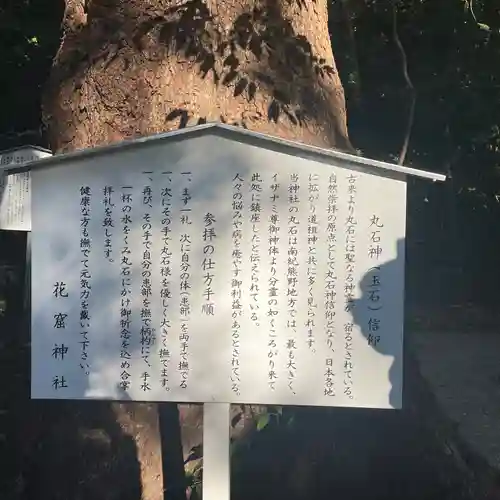 丸石神（玉石）信仰
古来より丸石には聖なる神霊が宿るとされている。
自然崇拝の原点として丸石神信仰となり、日本各地
に拡がり道祖神と共に多く見られます。
当神社の丸石は南紀熊野地方では、最も大きく、
イザナミ尊御神体より分霊の如くころがり来て
此処に鎮座したと伝えられている。
人々の悩みや病を癒やす御利益があるとされている。
参拝の仕方手順
一、まず一礼 次に自分の体（患部）を両手で撫でる
一、次にその手で丸石様を優しく大きく撫でます。
一、再び、その手で自分の患部を撫で柄杓にて、手水
一杯の水をくみ丸石にかけ御祈念を込め合掌
拝礼を致します。
健康な方も撫でて元気力を戴いて下さい。
花窟神社